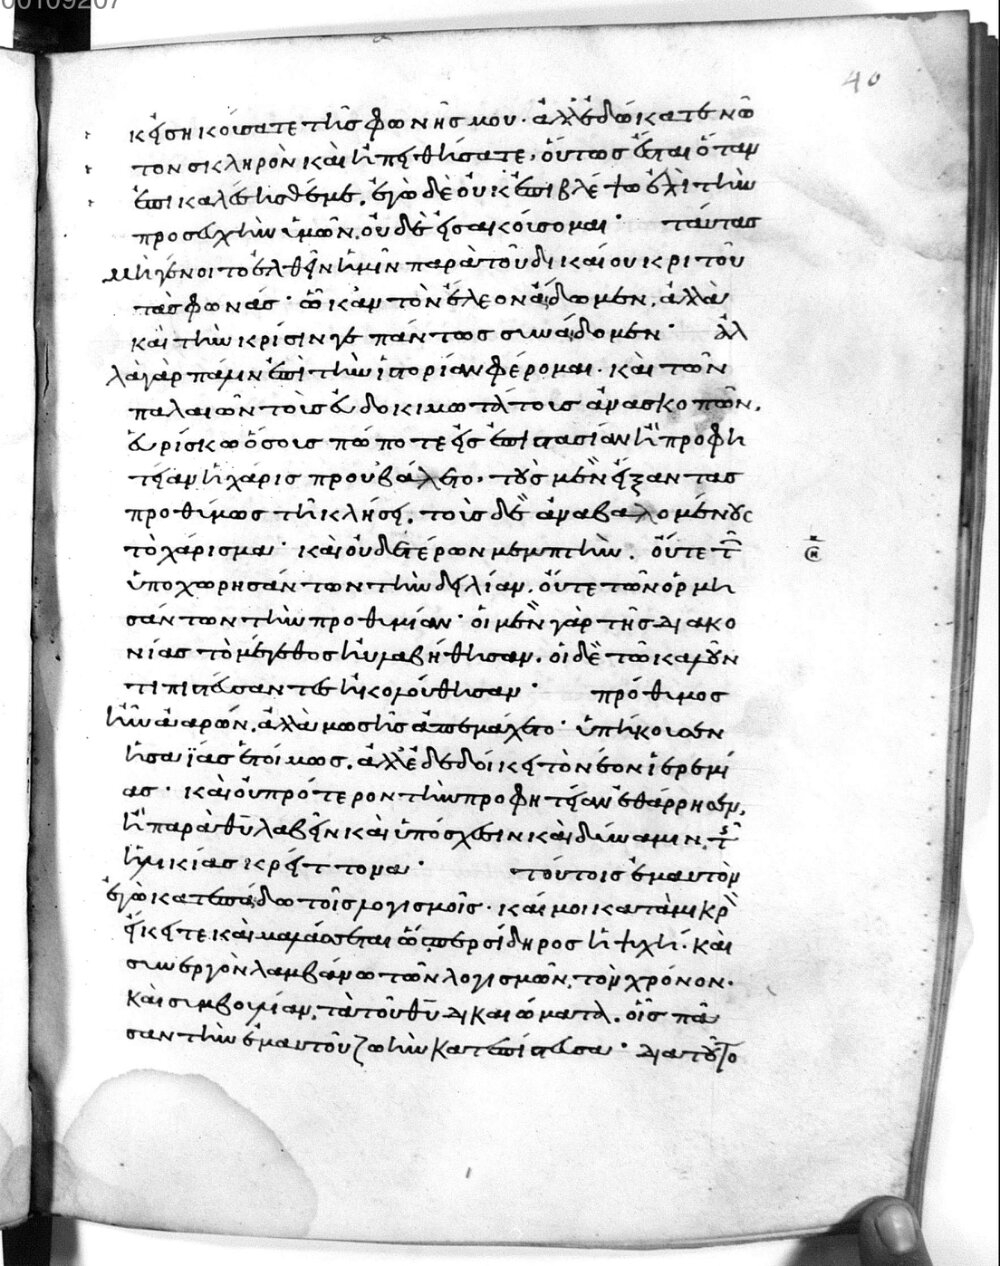 00109207
40
κ εἰσηκούσατε τῆς φωνῆς μου· ἀλλ' ἐδώκατε νῶ
τον σκληρὸν καὶ ἠπειθήσατε, οὕτως ἔσται ὅταν
ἐπικαλέσησθέ με, ἐγὼ δὲ οὐκ ἐπιβλέψω ἐπὶ τὴν
προσευχὴν ὑμῶν, οὐδὲ εἰσακούσομαι· ταύτας
μὴ γένοιτο ἐλθεῖν ἡμῖν παρὰ τοῦ δικαίου κριτοῦ
τὰς φωνάς· ᾧ κἂν τὸν ἔλεον ᾄδωμεν, ἀλλὰ
καὶ τὴν κρίσιν γε πάντως συνᾴδομεν· ἀλ
λὰ γὰρ πάλιν ἐπὶ τὴν ἱστορίαν φέρομαι· καὶ τῶν
παλαιῶν τοῖς εὐδοκιμωτάτοις ἀνασκοπῶν,
εὑρίσκω ὅσους πώποτε εἰς ἐπιστασίαν ἢ προφη
τείαν ἡ χάρις προὐβάλετο, τοὺς μὲν εἴξαντας
προθύμως τῇ κλήσει, τοὺς δὲ ἀναβαλομένους
τὸ χάρισμα· καὶ οὐδετέρων μεμπτὴν, οὔτε τῶν
ὑποχωρησάντων τὴν δειλίαν, οὔτε τῶν ὁρμη
σάντων τὴν προθυμίαν· οἱ μὲν γὰρ τῆς διακο
νίας τὸ μέγεθος ηὐλαβήθησαν, οἱ δὲ τῷ καλοῦν
τι πιστεύσαντες ἠκολούθησαν· πρόθυμος
ἦν ἀαρών, ἀλλὰ μωσῆς ἀπεμάχετο· ὑπήκουσεν
ἡσαΐας ἑτοίμως, ἀλλ' ἐδεδοίκει τὸ νέον ἱερεμί
ας· καὶ οὐ πρότερον τὴν προφητείαν ἐθάρρησεν,
ἢ παρὰ θυ λαβεῖν καὶ ὑπόσχεσιν καὶ δύναμιν, τῆς
ἡλικίας κρείττονα· τούτοις ἐμαυτὸν
ἐγὼ κατεπᾴδω τοῖς λογισμοῖς· καί μοι κατὰ μικρὸν
εἴκει τε καὶ μαλάσσεται ὥσπερ σίδηρος ἡ ψυχή· καὶ
συνεργὸν λαμβάνω τῶν λογισμῶν, τὸν χρόνον·
καὶ συμβουλίαν, τὰ τοῦ θυ δικαιώματα, οἷς πᾶ
σαν τὴν ἐμαυτοῦ ζωὴν κατεπίστευσα· διατοῦτο